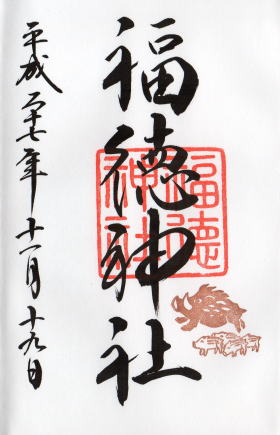 福徳神社
福德
神社
平成二十七年十一月十九日